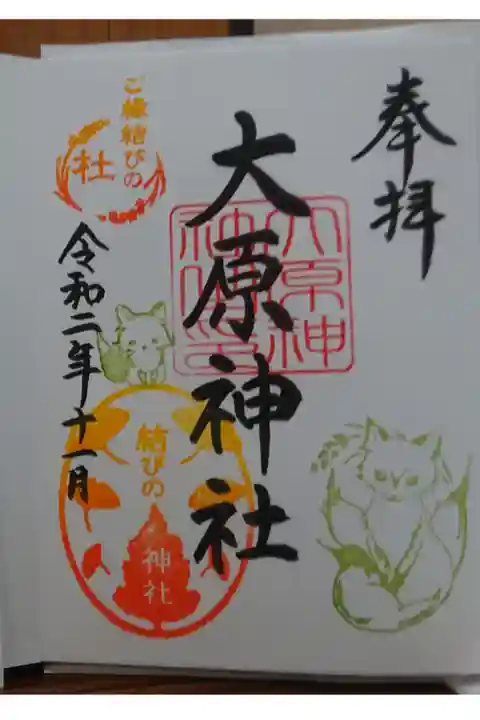 奉拝
大原神社
ご縁結びの
杜
令和二年十一月
結びの
神社